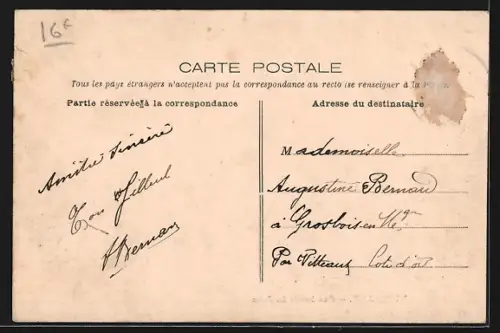 16€
CARTE POSTALE
Tous les pays étrangers n'acceptent pas la correspondance au recto (se renseigner à la
Partie réservée à la correspondance
Adresse du destinataire
Amitié sincère
Ton filleul
Bernard
Mademoiselle
Augustine Bernard
à Grosbois en Mgne
Par Vitteaux Cote d'or